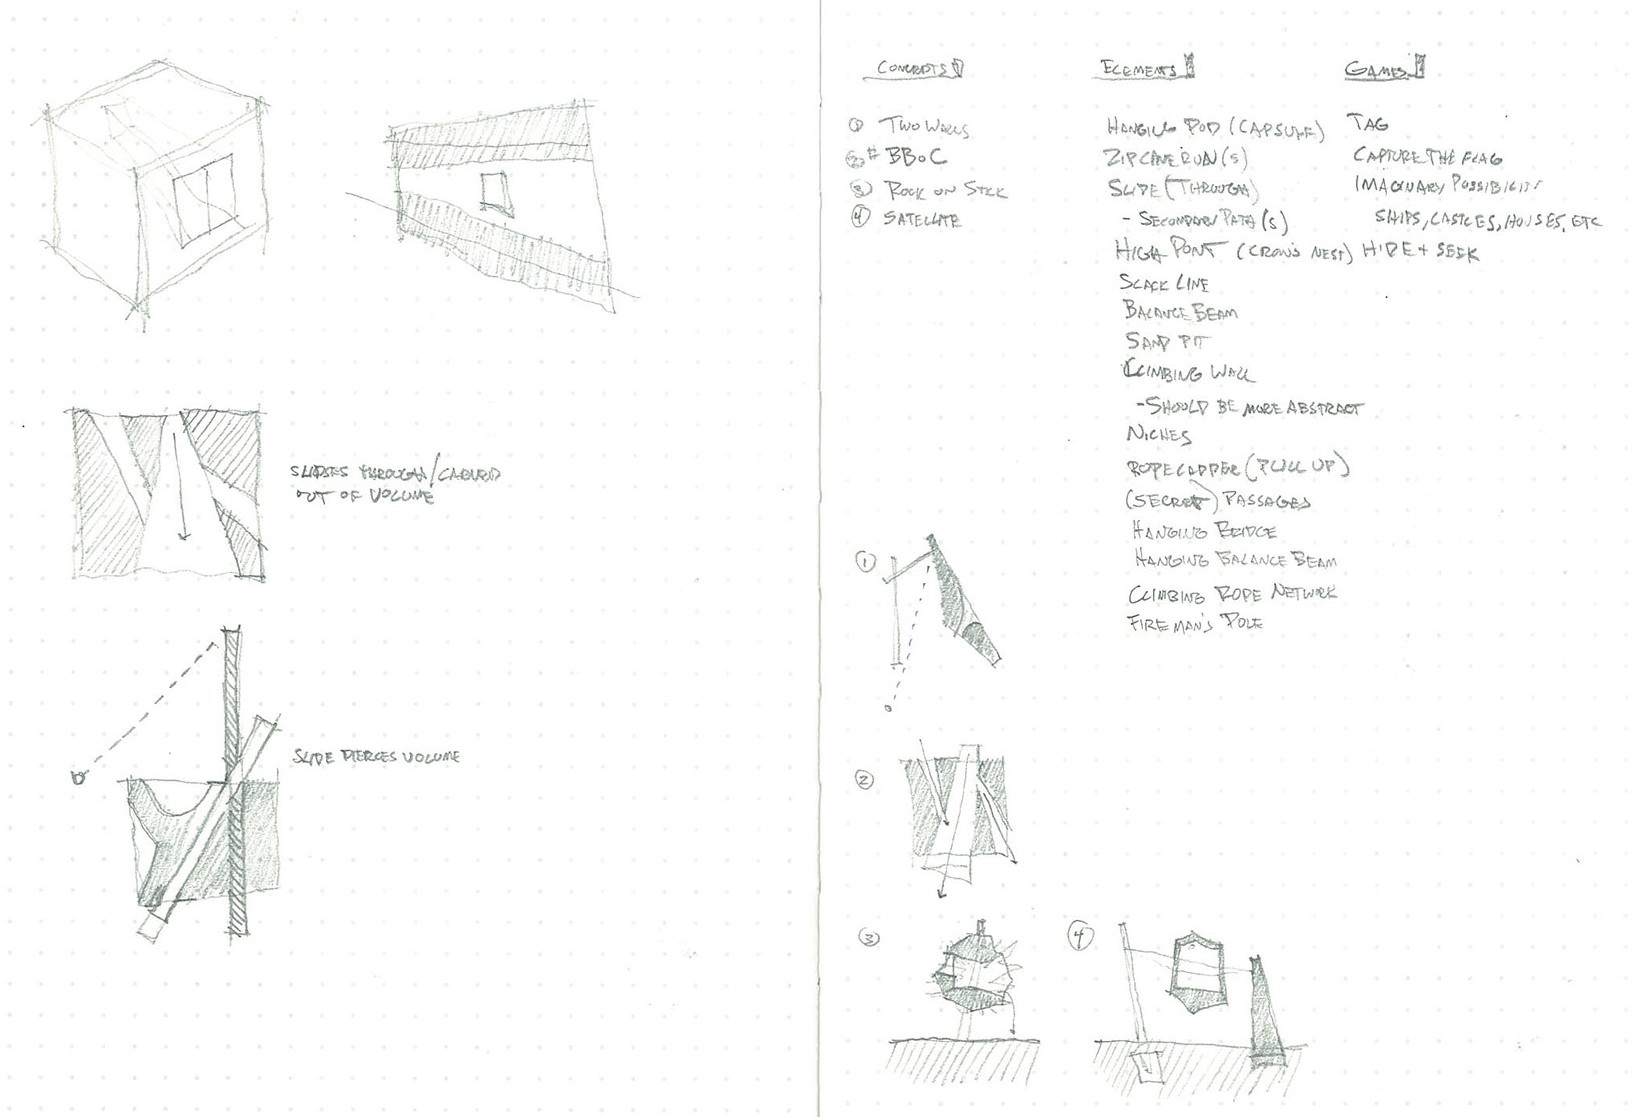 SLIDES THROUGH/CARVED
OUT OF VOLUME
SLIDE PIERCES VOLUME
CONCEPTS
① TWO WALLS
② # BBOC
③ ROCK ON STICK
④ SATELLITE
ELEMENTS
HANGING POD (CAPSULE)
ZIPLINE RUN(S)
SLIDE (THROUGH)
- SECONDARY PATH(S)
HIGH POINT (CROW'S NEST)
SLACK LINE
BALANCE BEAM
SAND PIT
CLIMBING WALL
- SHOULD BE MORE ABSTRACT
NICHES
ROPE LADDER (PULL UP)
(SECRET) PASSAGES
HANGING BRIDGE
HANGING BALANCE BEAM
CLIMBING ROPE NETWORK
FIREMAN'S POLE
GAMES
TAG
CAPTURE THE FLAG
IMAGINARY POSSIBILITIES
SHIPS, CASTLES, HOUSES, ETC
HIDE + SEEK
①
②
③
④